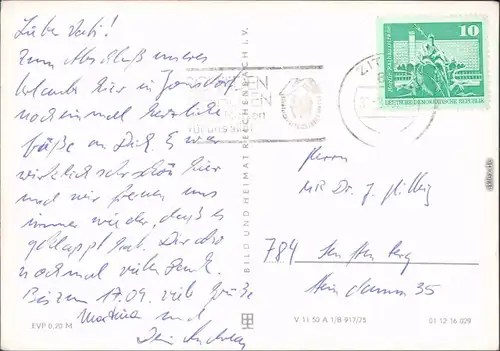 Liebe Vati!
Zum Abschluß unseres
Urlaubs hier in Jonsdorf
noch einmal herzliche
Grüße an Dich. Es war
wirklich sehr schön hier
und wir freuen uns
immer wieder, daß es
geklappt hat. Dir also
noch mal vielen Dank.
Bis zum 17.09. viele Grüße
Martina und
Dein Andreas
EVP 0,20 M
BILD UND HEIMAT REICHENBACH I. V.
V 11 50 A 1/B 917/75
01 12 16 029
10
DEUTSCHE DEMOKRATISCHE REPUBLIK
Herrn
MR Dr. J.
784 Senftenberg
Steindamm 35